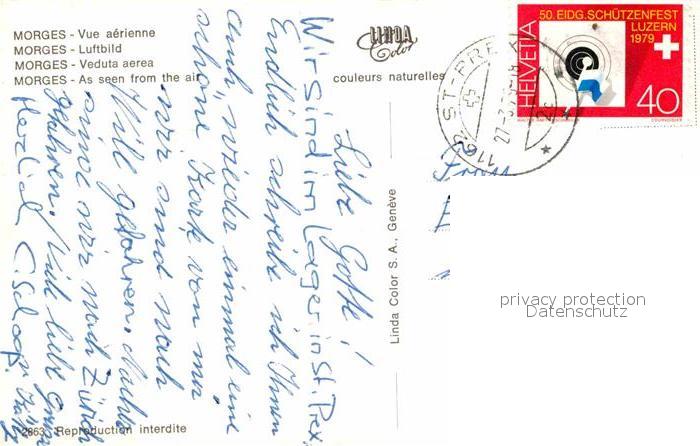 MORGES - Vue aérienne
MORGES - Luftbild
MORGES - Veduta aerea
MORGES - As seen from the air
LINDA
Color
couleurs naturelles
50. EIDG. SCHÜTZENFEST
LUZERN
1979
HELVETIA
40
1162 ST-PREX
27.3.79-18
Liebe Gotte!
Wir sind im Lager in St. Prex.
Endlich schreibe ich Ihnen
auch wieder einmal eine
schöne Karte von
wir sind nach
gefahren. Nachher
sind wir nach Zürich
gefahren. Viele liebe Grüsse
Herzlich
Linda Color S.A., Genève
2863 Reproduction interdite
privacy protection
Datenschutz